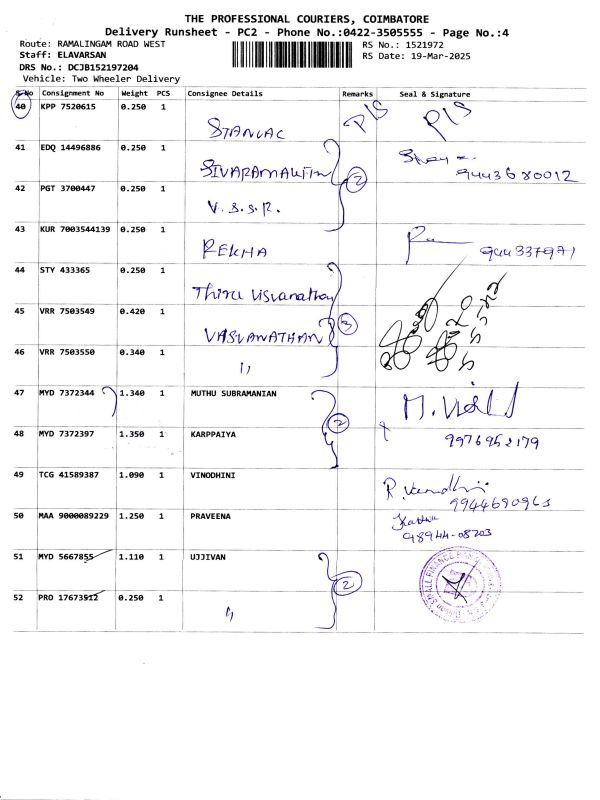 THE PROFESSIONAL COURIERS, COIMBATORE
Delivery Runsheet - PC2 - Phone No.:0422-3505555 - Page No.:4
Route: RAMALINGAM ROAD WEST RS No.: 1521972
Staff: ELAVARSAN RS Date: 19-Mar-2025
DRS No.: DCJB152197204
Vehicle: Two Wheeler Delivery
S No Consignment No Weight PCS Consignee Details Remarks Seal & Signature
40 KPP 7520615 0.250 1 STANVAC P/S P/S
41 EDQ 14496886 0.250 1 2
9443680012
42 PGT 3700447 0.250 1 V.S.S.R.
43 KUR 7003544139 0.250 1 REKHA 944337971
44 STY 433365 0.250 1 Thiru Visvanathan
45 VRR 7503549 0.420 1 VASVANATHAN 3
46 VRR 7503550 0.340 1 "
47 MYD 7372344 1.340 1 MUTHU SUBRAMANIAN
48 MYD 7372397 1.350 1 KARPPAIYA 2 9976952179
49 TCG 41589387 1.090 1 VINODHINI R. Vinodhini
9944690963
50 MAA 9000089229 1.250 1 PRAVEENA
98944-08203
51 MYD 5667855 1.110 1 UJJIVAN 2
52 PRO 17673512 0.250 1 "